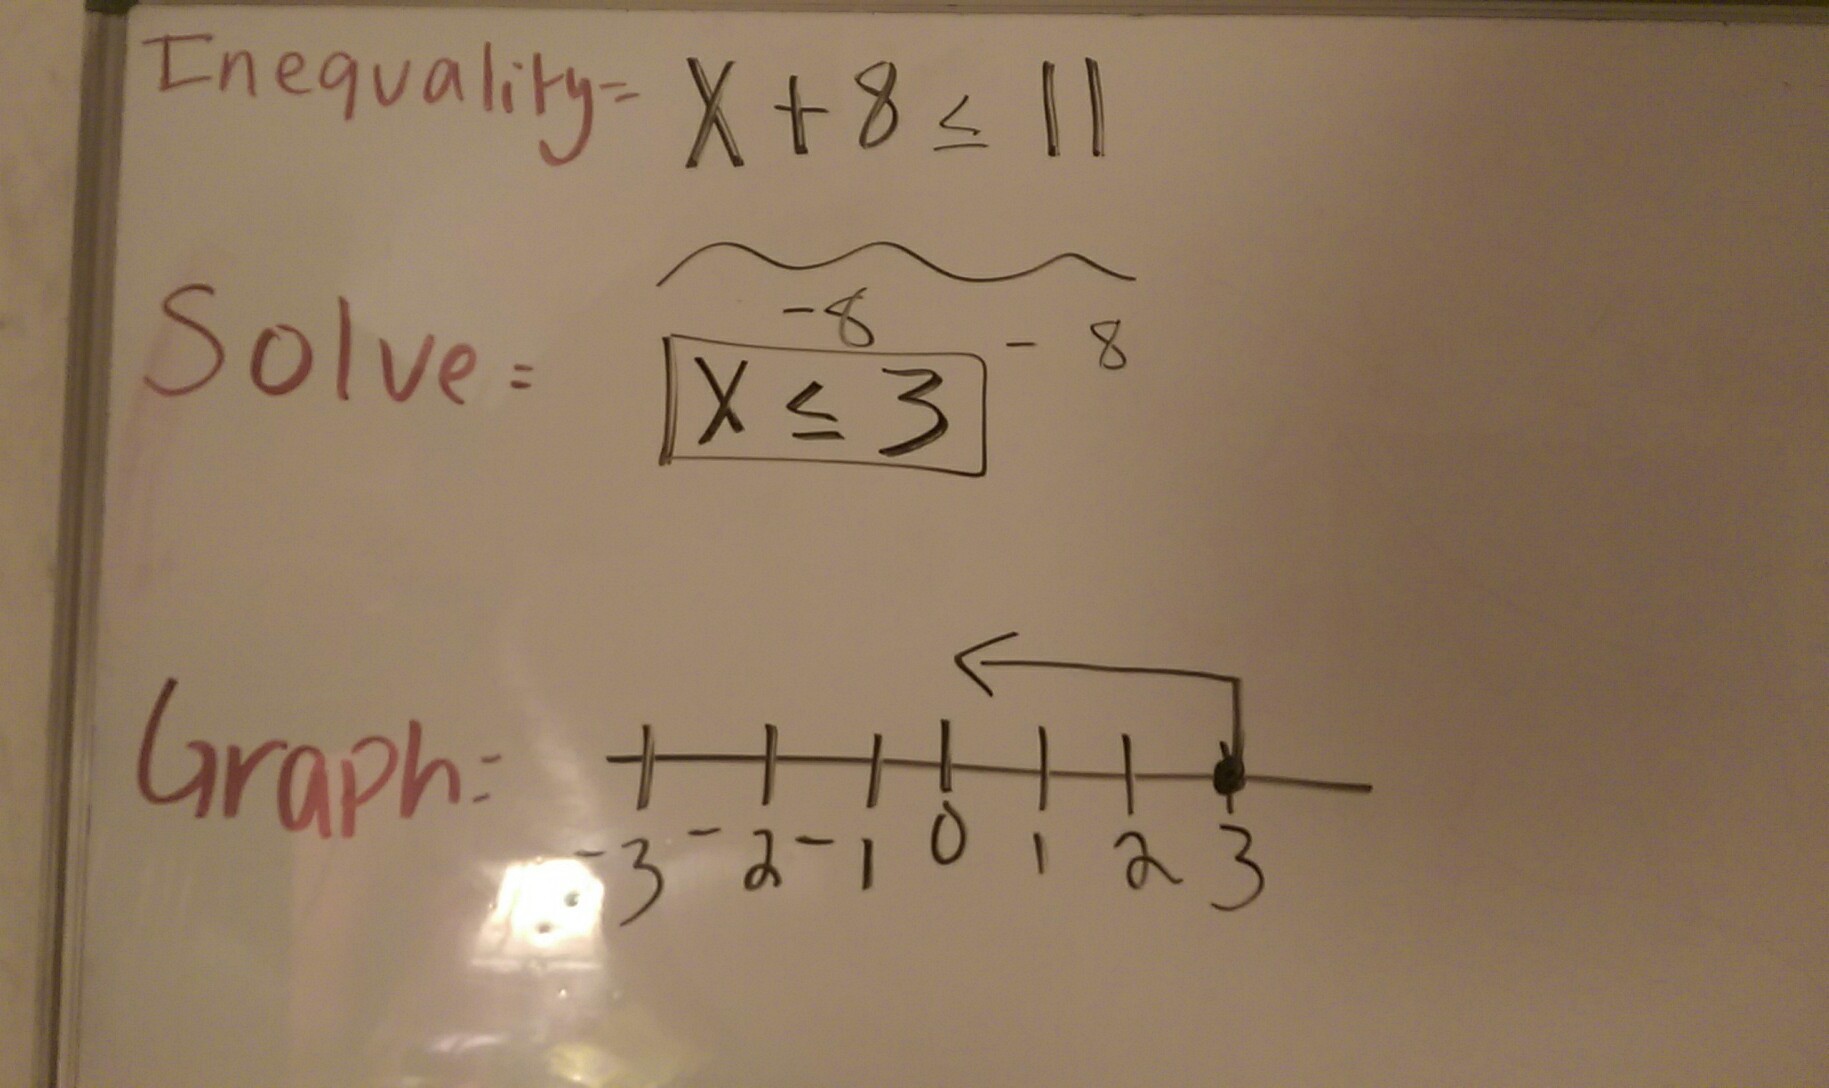 Inequality= X + 8 ≤ 11
-8 - 8
Solve= X ≤ 3
Graph=
-3 -2 -1 0 1 2 3